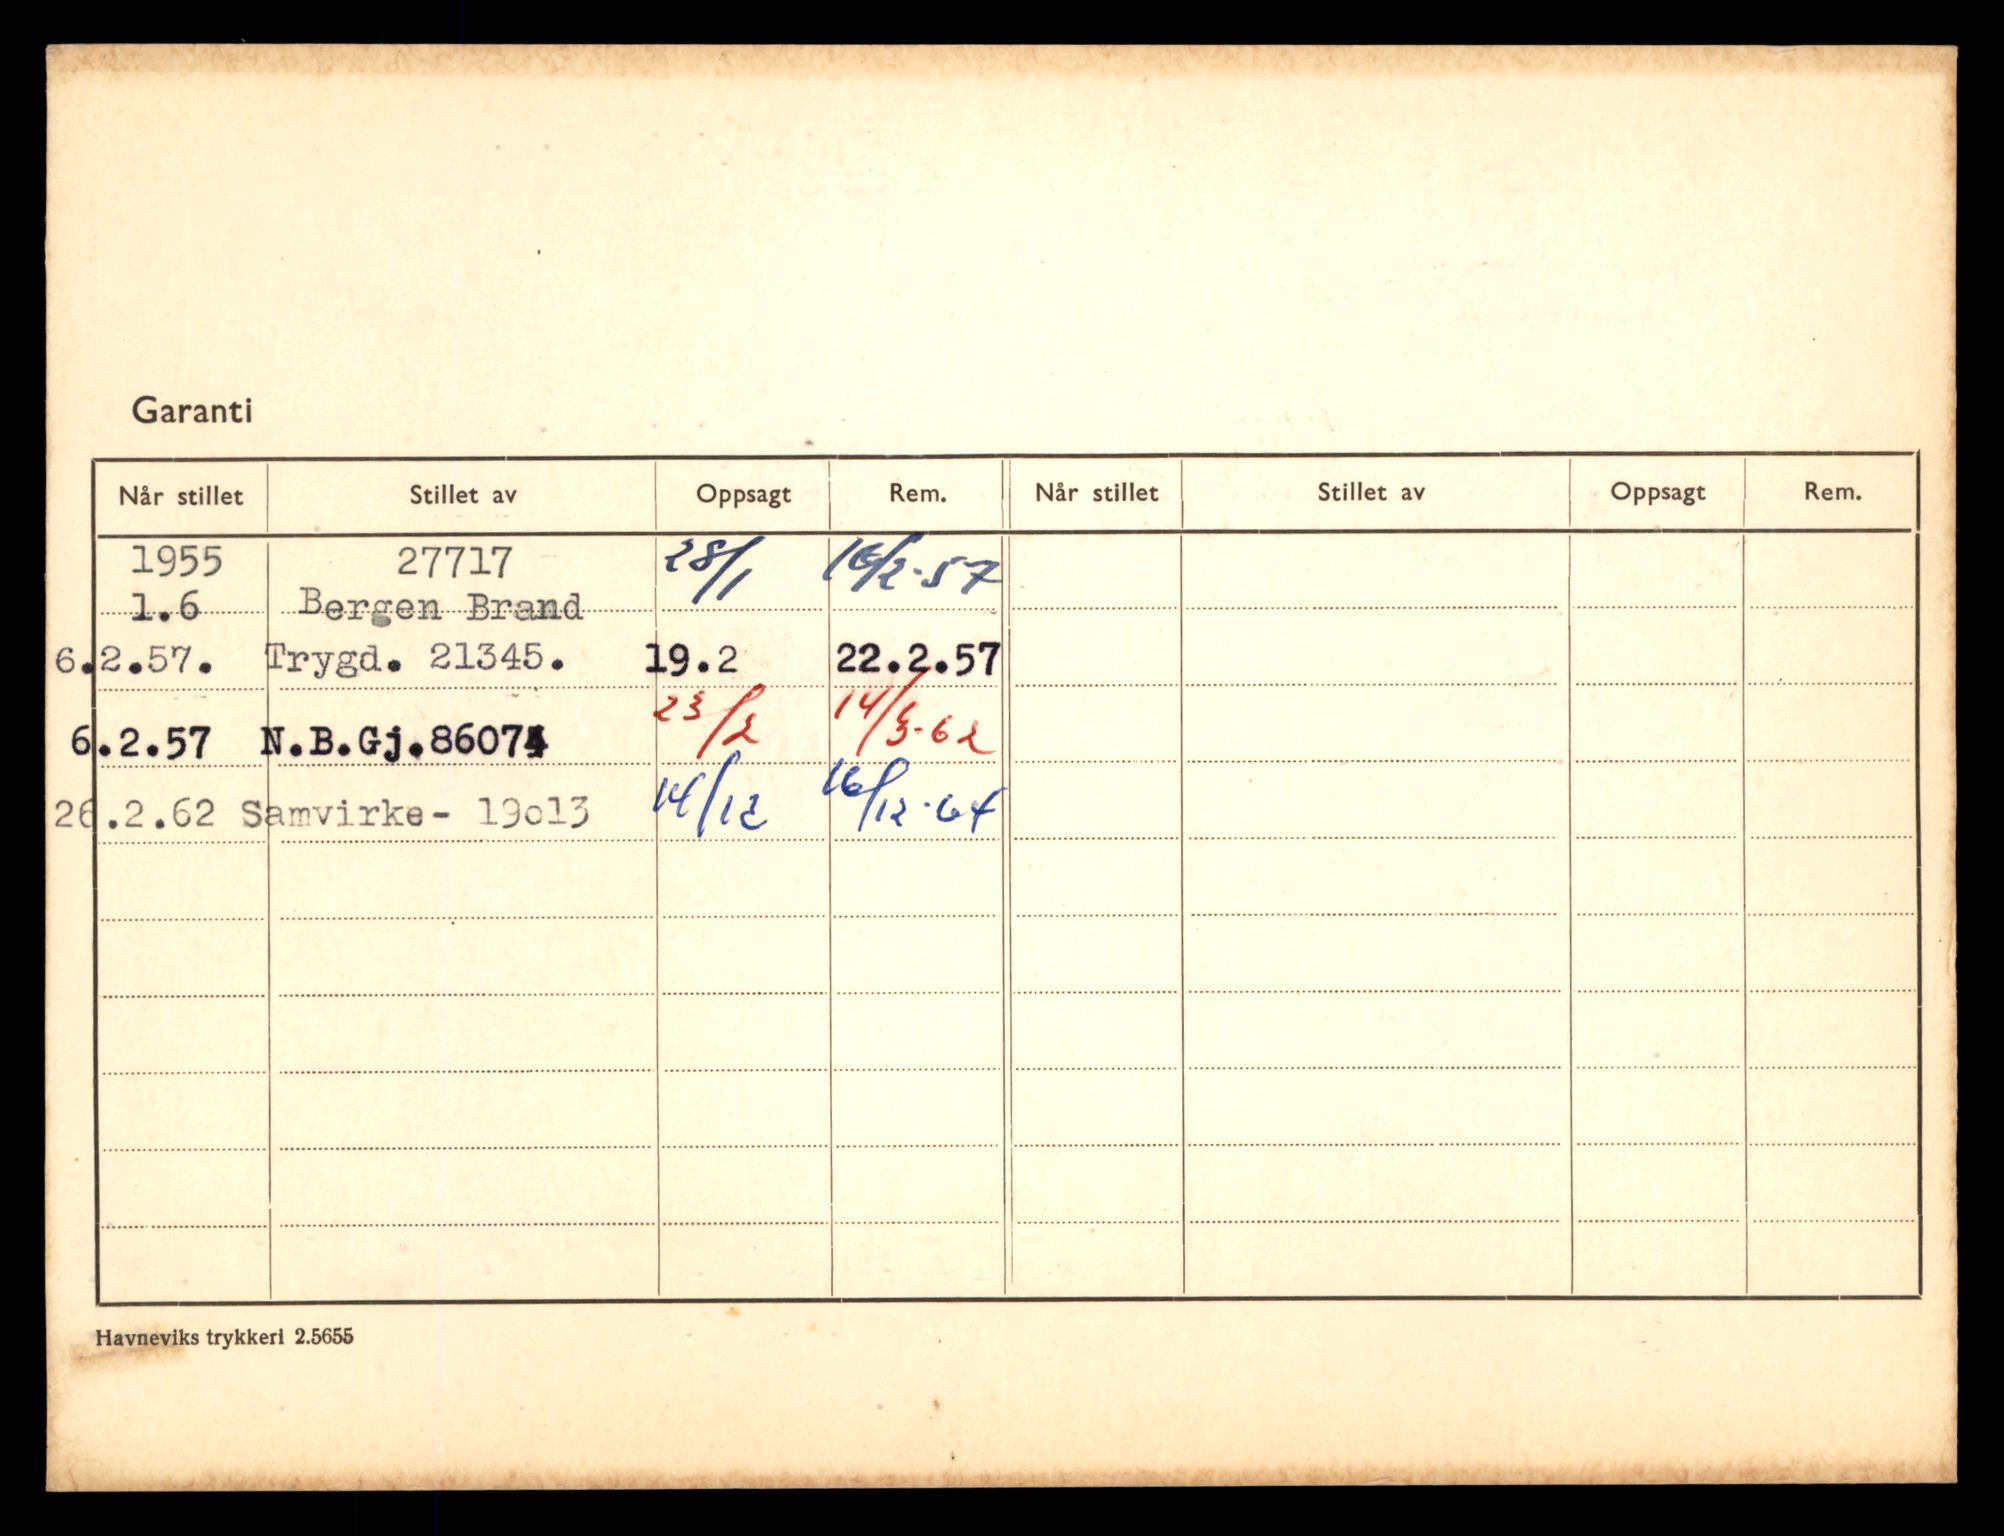 Garanti
Når stillet Stillet av Oppsagt Rem. Når stillet Stillet av Oppsagt Rem.
1955 27717 28/1 16/2-57
1.6 Bergen Brand
6.2.57. Trygd. 21345. 19.2 22.2.57
6.2.57 N.B.Gj.86074 23/2 14/3-62
26.2.62 Samvirke- 19o13 14/12 16/12-64
Havneviks trykkeri 2.5655